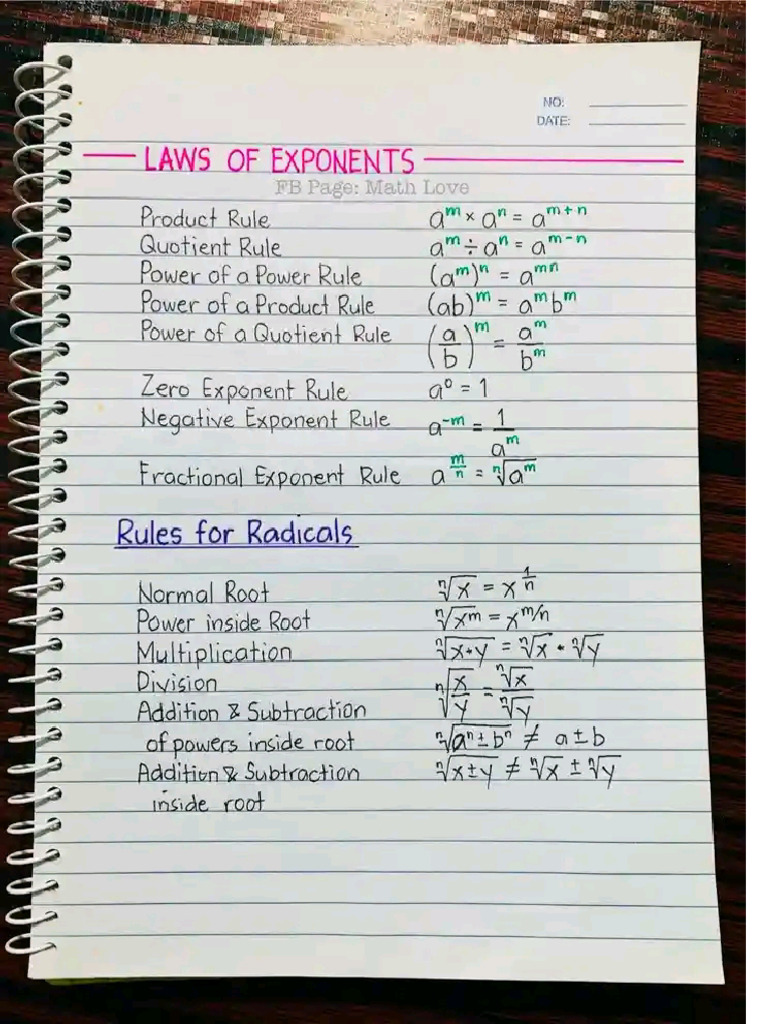 NO:
DATE:
LAWS OF EXPONENTS
FB Page: Math Love
Product Rule aᵐ × aⁿ = aᵐ⁺ⁿ
Quotient Rule aᵐ ÷ aⁿ = aᵐ⁻ⁿ
Power of a Power Rule (aᵐ)ⁿ = aᵐⁿ
Power of a Product Rule (ab)ᵐ = aᵐbᵐ
Power of a Quotient Rule (a/b)ᵐ = aᵐ/bᵐ
Zero Exponent Rule a⁰ = 1
Negative Exponent Rule a⁻ᵐ = 1/aᵐ
Fractional Exponent Rule a^(m/n) = ⁿ√(aᵐ)
Rules for Radicals
Normal Root ⁿ√x = x^(1/n)
Power inside Root ⁿ√(xᵐ) = x^(m/n)
Multiplication ⁿ√(x•y) = ⁿ√x • ⁿ√y
Division ⁿ√(x/y) = ⁿ√x/ⁿ√y
Addition & Subtraction
of powers inside root ⁿ√(aⁿ±bⁿ) ≠ a±b
Addition & Subtraction ⁿ√(x±y) ≠ ⁿ√x ± ⁿ√y
inside root